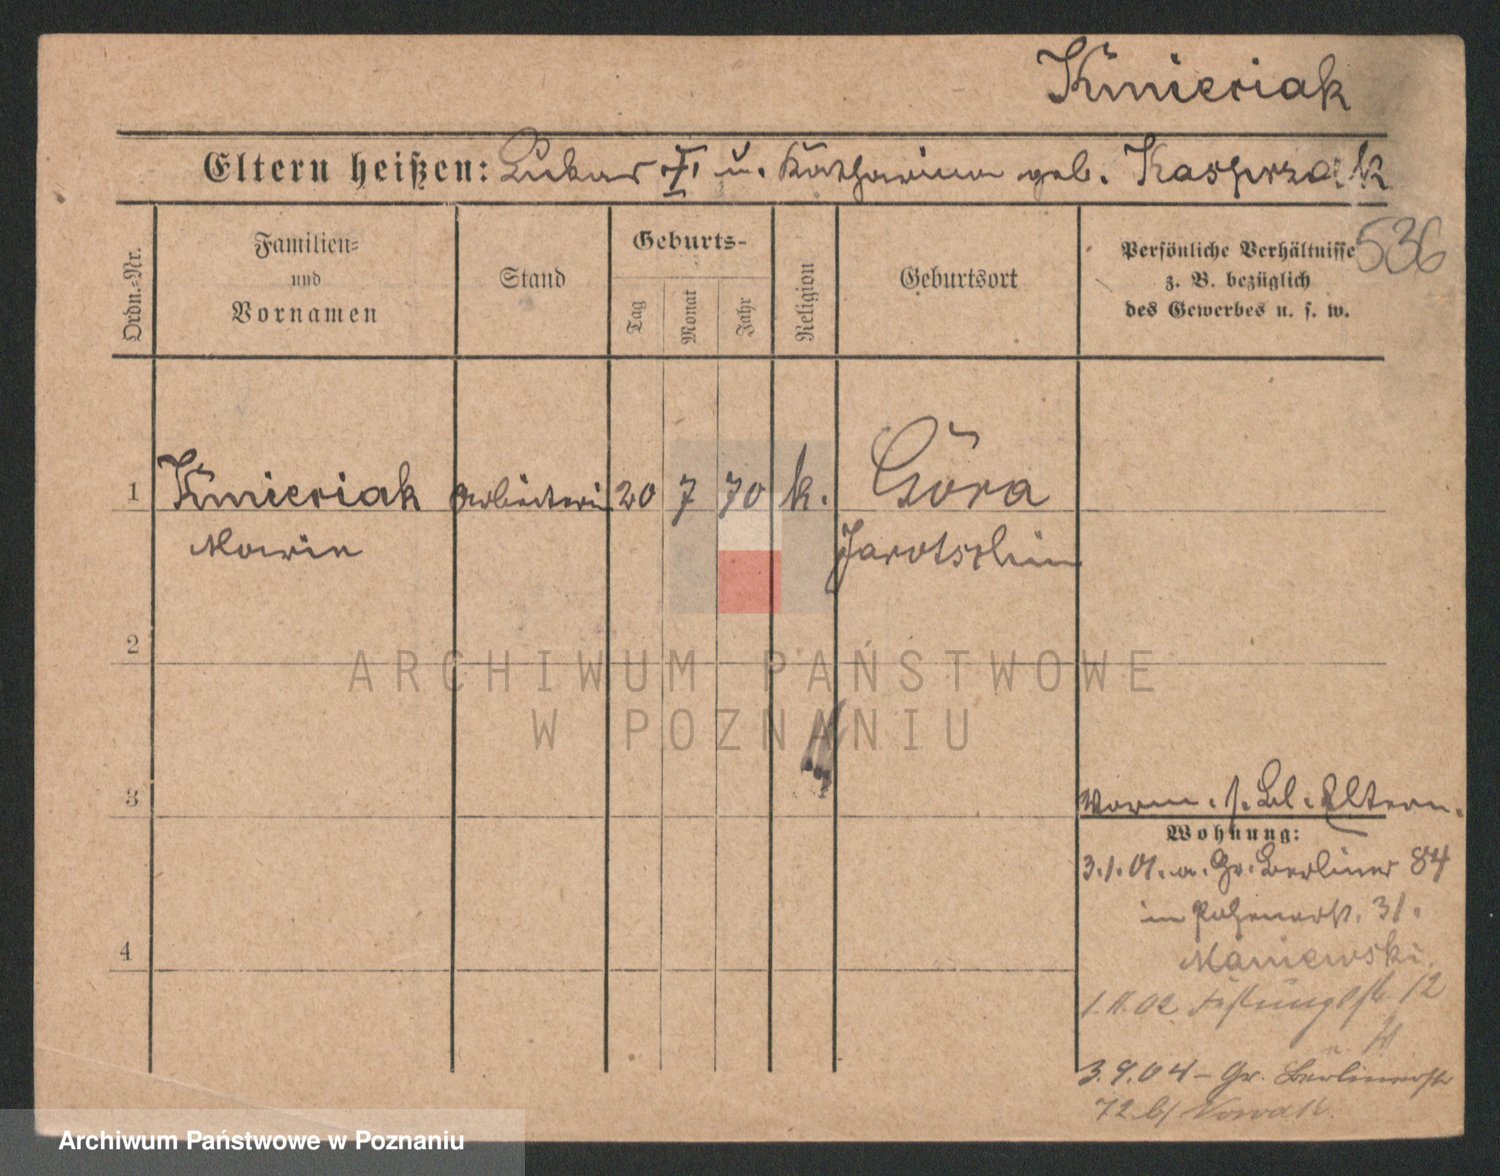 Kmieciak
Eltern heißen: Lukas II u. Katharina geb. Kasprzak
536
Ordn.-Nr.
Familien-
und
Vornamen
Stand
Geburts-
Tag
Monat
Jahr
Religion
Geburtsort
Persönliche Verhältnisse
z. B. bezüglich
des Gewerbes u. s. w.
1 Kmieciak Arbeiterin 20 7 70 k. Góra
Marie Jarotschin
2
3
Vorm. s. Bl. Eltern.
Wohnung:
3.1.01. a. Gr. Berliner 84
in Posenerstr. 31.
Maniewski
4
1.11.02 Festungsstr. 12
3.9.04 - Gr. Berlinerstr
72 b/ Nowak.
ARCHIWUM PAŃSTWOWE
W POZNANIU
Archiwum Państwowe w Poznaniu